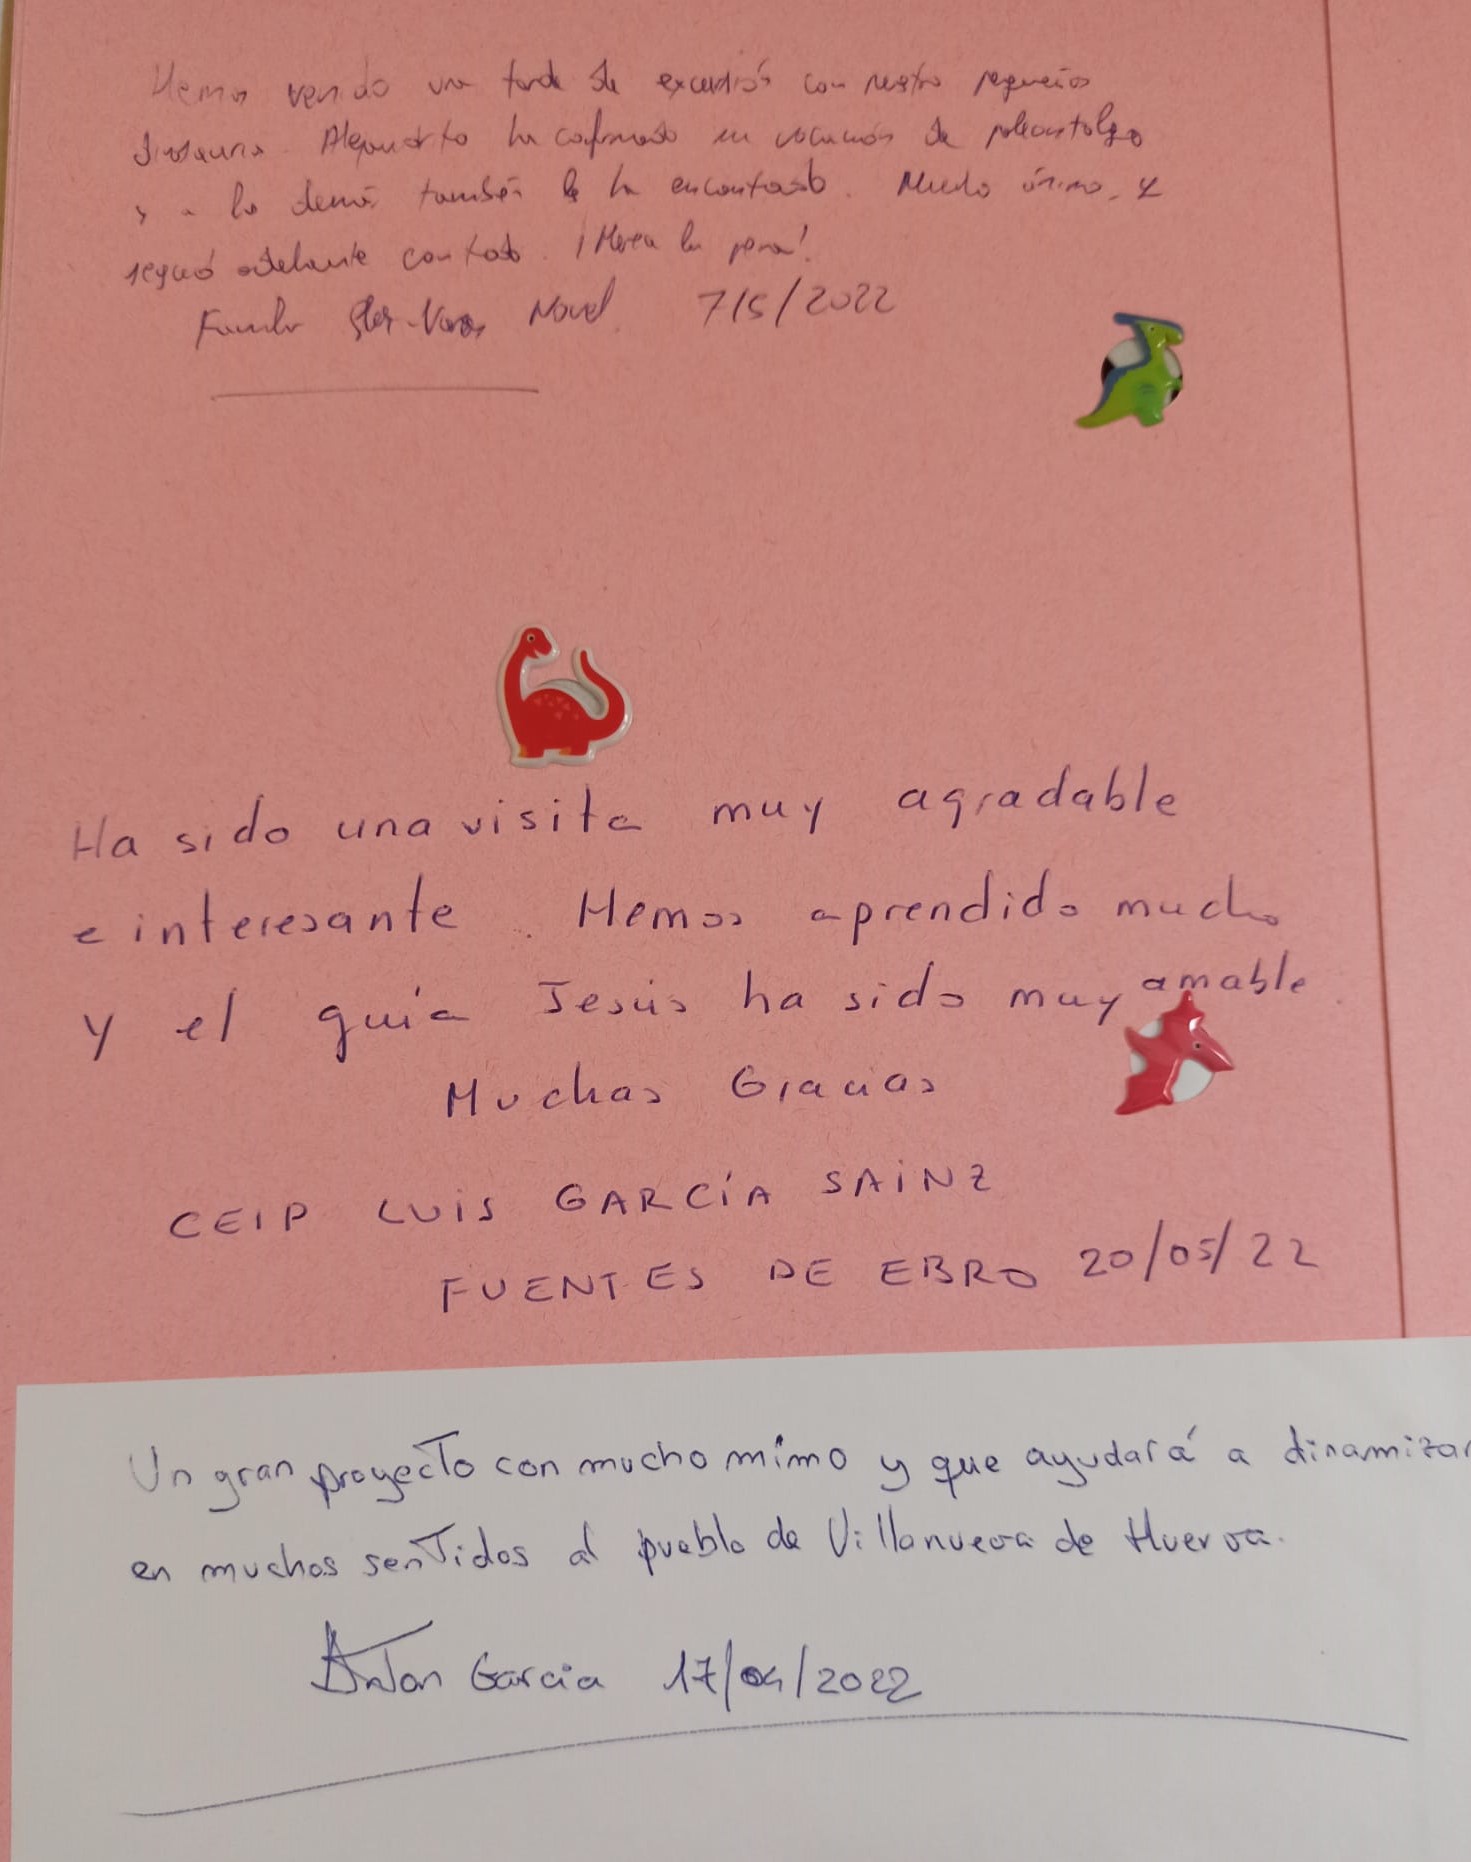 Hemos venido una tarde de excursión con nuestros pequeños
dinosaurios. Alejandrito ha confirmado su vocación de paleontólogo
y a los demás también les ha encantado. Mucho ánimo, y
seguid adelante con todo. ¡Merece la pena!
Familia Novel 7/5/2022
Ha sido una visita muy agradable
e interesante. Hemos aprendido mucho
y el guía Jesús ha sido muy amable
Muchas Gracias
CEIP LUIS GARCÍA SAINZ
FUENTES DE EBRO 20/05/22
Un gran proyecto con mucho mimo y que ayudará a dinamizar
en muchos sentidos al pueblo de Villanueva de Huerva.
Anton Garcia 17/04/2022